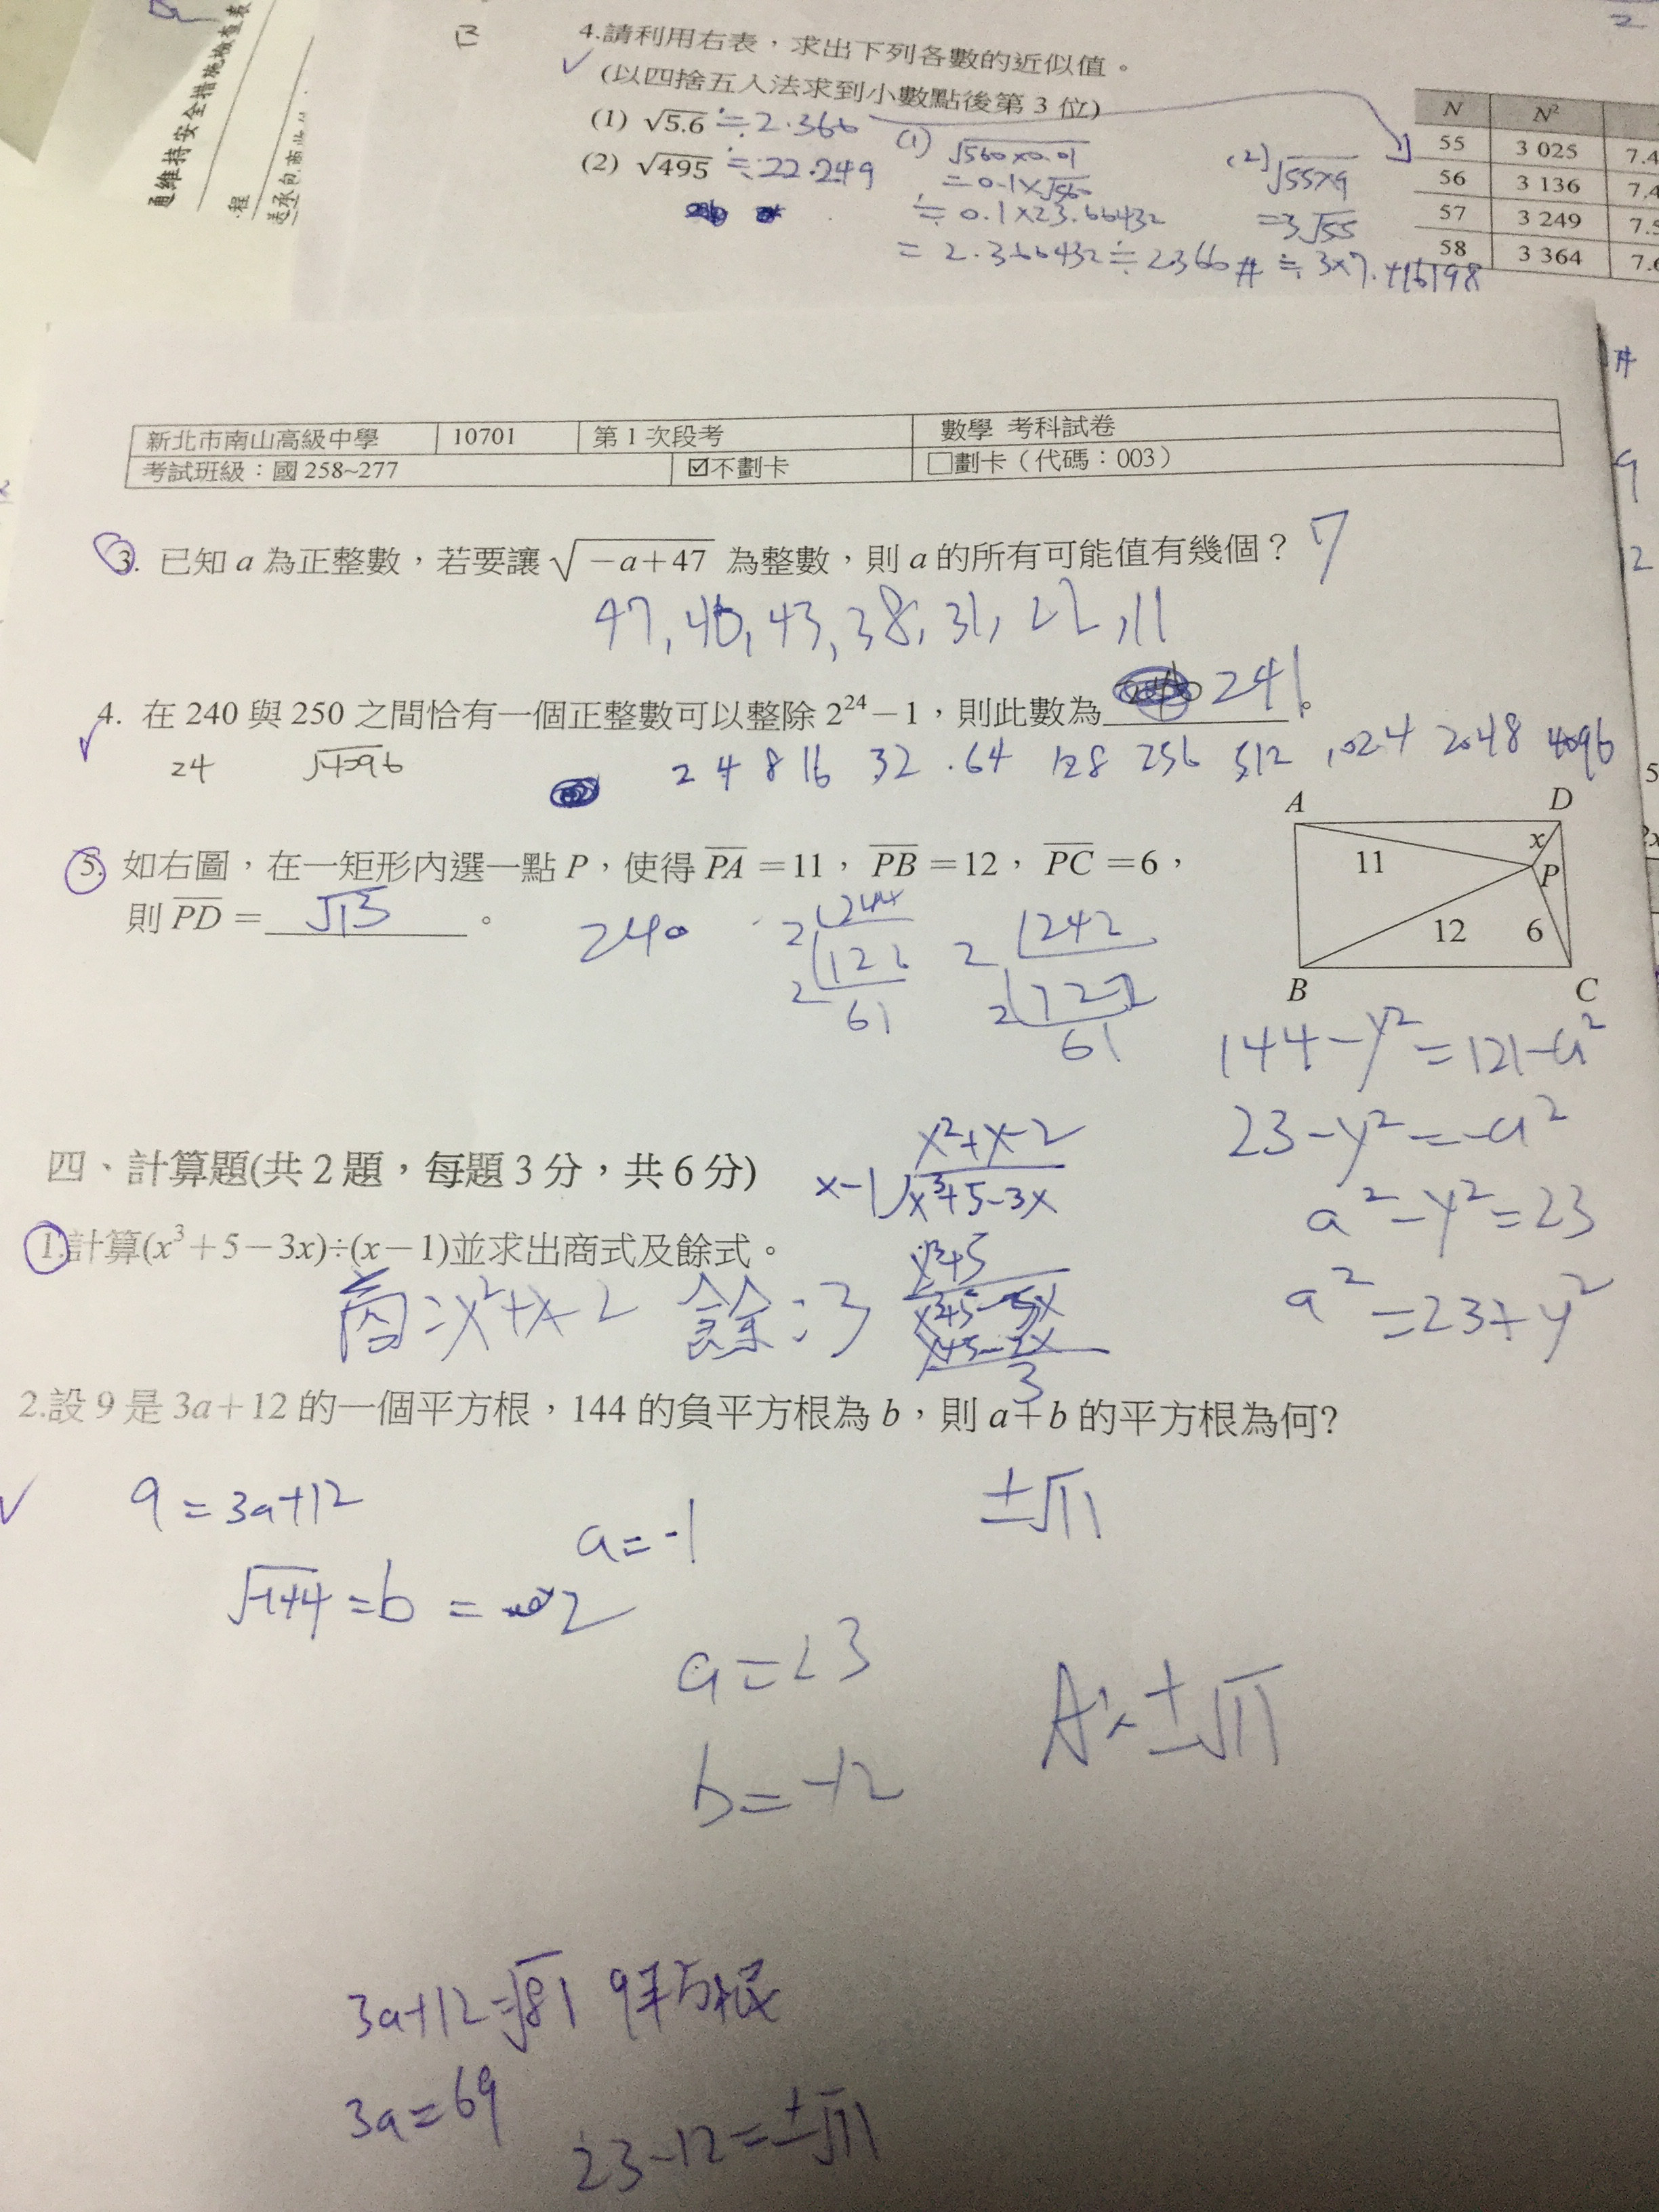 通維持安全措施檢查表
程
4.請利用右表,求出下列各數的近似值。
(以四捨五入法求到小數點後第 3 位)
(1) √5.6 ≒ 2.366
(2) √495 ≒ 22.249
(1) √560×0.01
= 0.1×√560
≒ 0.1×23.66432
= 2.366432 ≒ 2.366 #
(2) √55×9
= 3√55
≒ 3×7.416198
N N²
55 3 025 7.4
56 3 136 7.4
57 3 249 7.5
58 3 364 7.6
新北市南山高級中學 10701 第 1 次段考 數學 考科試卷
考試班級:國 258~277 ☑不劃卡 □劃卡(代碼:003)
3. 已知 a 為正整數,若要讓 √−a+47 為整數,則 a 的所有可能值有幾個? 7
47, 46, 43, 38, 31, 22, 11
4. 在 240 與 250 之間恰有一個正整數可以整除 2²⁴−1,則此數為 241。
24 √4096
2 4 8 16 32 64 128 256 512 1024 2048 4096
5. 如右圖,在一矩形內選一點 P,使得 PA=11,PB=12,PC=6,
則 PD= √13 。
A D
x
11 P
12 6
B C
240
2 244
2 122
61
2 242
2 122
61
144−y²=121−a²
23−y²=−a²
a²−y²=23
a²=23+y²
四、計算題(共 2 題,每題 3 分,共 6 分)
x²+x−2
x−1 x³+5−3x
1.計算(x³+5−3x)÷(x−1)並求出商式及餘式。
商:x²+x−2 餘:3
3
2.設 9 是 3a+12 的一個平方根,144 的負平方根為 b,則 a+b 的平方根為何?
9=3a+12
a=−1
±√11
√144=b=
2
a=23
b=−12
A:±√11
3a+12=√81 9平方根
3a=69
23−12=±√11